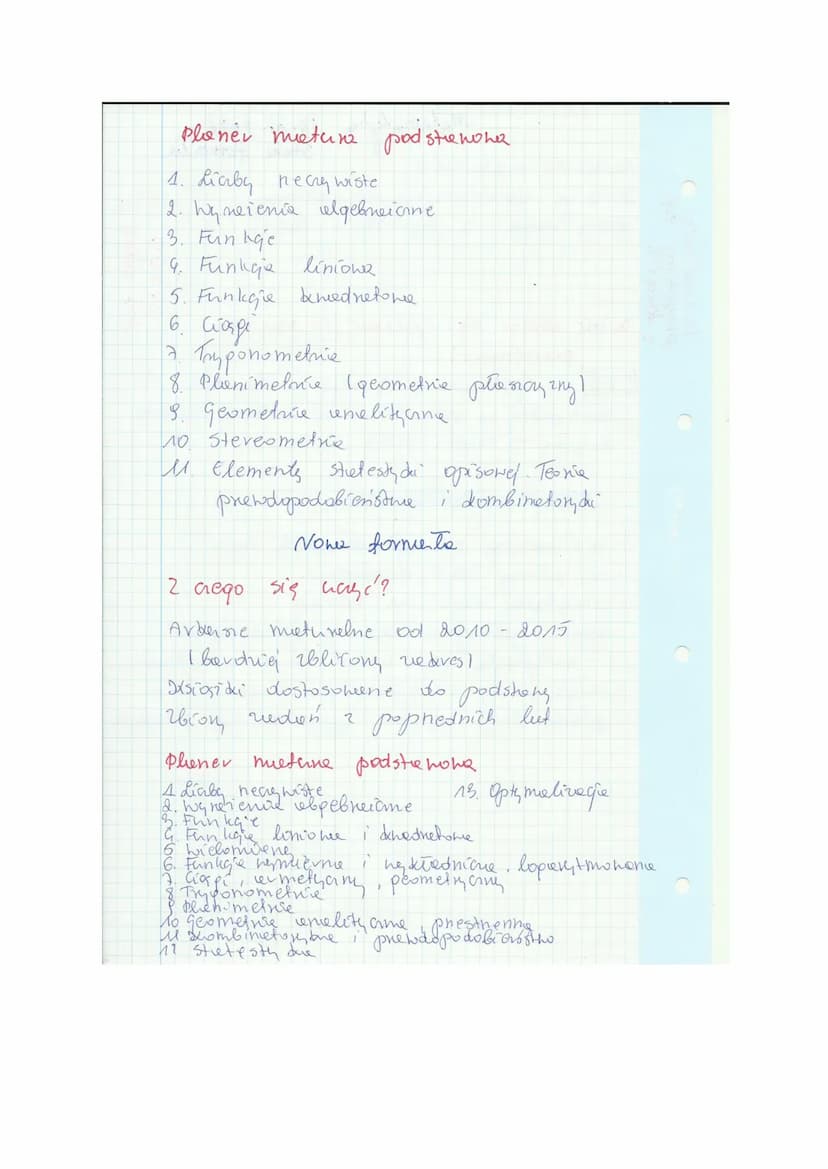 Planer matura podstawowa
1. Liczby rzeczywiste
2. Wyrażenia algebraiczne
3. Funkcje
4. Funkcja liniowa
5. Funkcja kwadratowa
6. Ciągi
7. Trygonometria
8. Planimetria (geometria płaszczyzny)
9. Geometria analityczna
10. Stereometria
11. Elementy statystyki opisowej. Teoria
prawdopodobieństwa i kombinatoryki
Nowa formuła
Z czego się uczyć?
Arkusze maturalne od 2010 - 2015
(bardziej zbliżony zakres)
Książki dostosowane do podstawy
Zbiory zadań z poprzednich lat
Planer matura podstawowa
1. Liczby rzeczywiste 13. Optymalizacja
2. Wyrażenia algebraiczne
3. Funkcje
4. Funkcje liniowa i kwadratowa
5 Wielomiany
6. Funkcja wymierna i wykładnicza. logarytmowana
7. Ciągi, arytmetyczny, geometryczny
8 Trygonometria
9 Planimetria
10 Geometria analityczna, przestrzenna
11 Kombinatoryka i prawdopodobieństwo
12 Statystyka